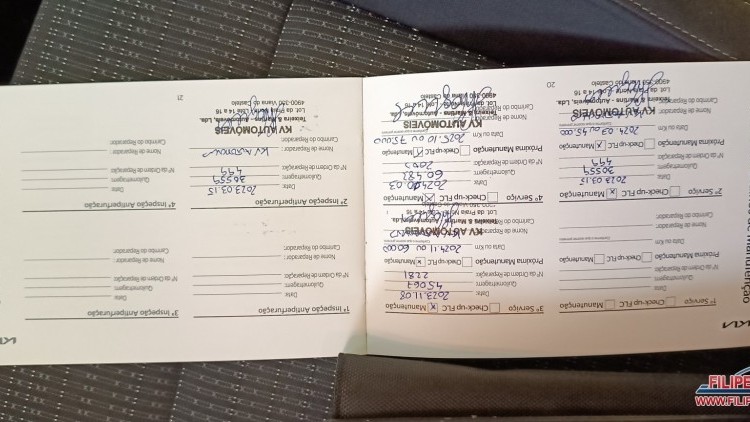 1º Serviço Check-up FLC Manutenção
Data:
Quilometragem:
Nº da Ordem de Reparação:
Próxima Manutenção Check-up FLC Manutenção
Data ou Km
Nome do Reparador:
Carimbo do Reparador:
2º Serviço Check-up FLC X Manutenção
Data: 2023.03.15
Quilometragem: 30559
Nº da Ordem de Reparação: 499
Próxima Manutenção Check-up FLC X Manutenção
Data ou Km 2024.03 ou 45.000
Nome do Reparador:
Carimbo do Reparador:
Teixeira & Martins - Automóveis, Lda.
4900-350 Viana do Castelo
20
3º Serviço Check-up FLC X Manutenção
Data: 2023.11.08
Quilometragem: 45067
Nº da Ordem de Reparação: 2281
Próxima Manutenção Check-up FLC X Manutenção
Data ou Km 2024.11 ou 60.000
Nome do Reparador:
KV AUTOMÓVEIS
Carimbo do Reparador:
4º Serviço Check-up FLC X Manutenção
Data:
Quilometragem: 60.482
Nº da Ordem de Reparação:
Próxima Manutenção Check-up FLC Manutenção
Data ou Km 2025.10 ou 75000
Nome do Reparador:
KV AUTOMÓVEIS
Carimbo do Reparador:
Teixeira & Martins - Automóveis, Lda.
4900-350 Viana do Castelo
1ª Inspeção Antiperfuração
Data:
Quilometragem:
Nº da Ordem de Reparação:
Nome do Reparador:
Carimbo do Reparador:
2ª Inspeção Antiperfuração
Data: 2023.03.15
Quilometragem: 30559
Nº da Ordem de Reparação: 499
Nome do Reparador:
Carimbo do Reparador:
KV AUTOMÓVEIS
Teixeira & Martins - Automóveis, Lda.
4900-350 Viana do Castelo
3ª Inspeção Antiperfuração
Data:
Quilometragem:
Nº da Ordem de Reparação:
Nome do Reparador:
Carimbo do Reparador:
4ª Inspeção Antiperfuração
Data:
Quilometragem:
Nº da Ordem de Reparação:
Nome do Reparador:
Carimbo do Reparador:
21
KIA
FILIPE
WWW.FILIP